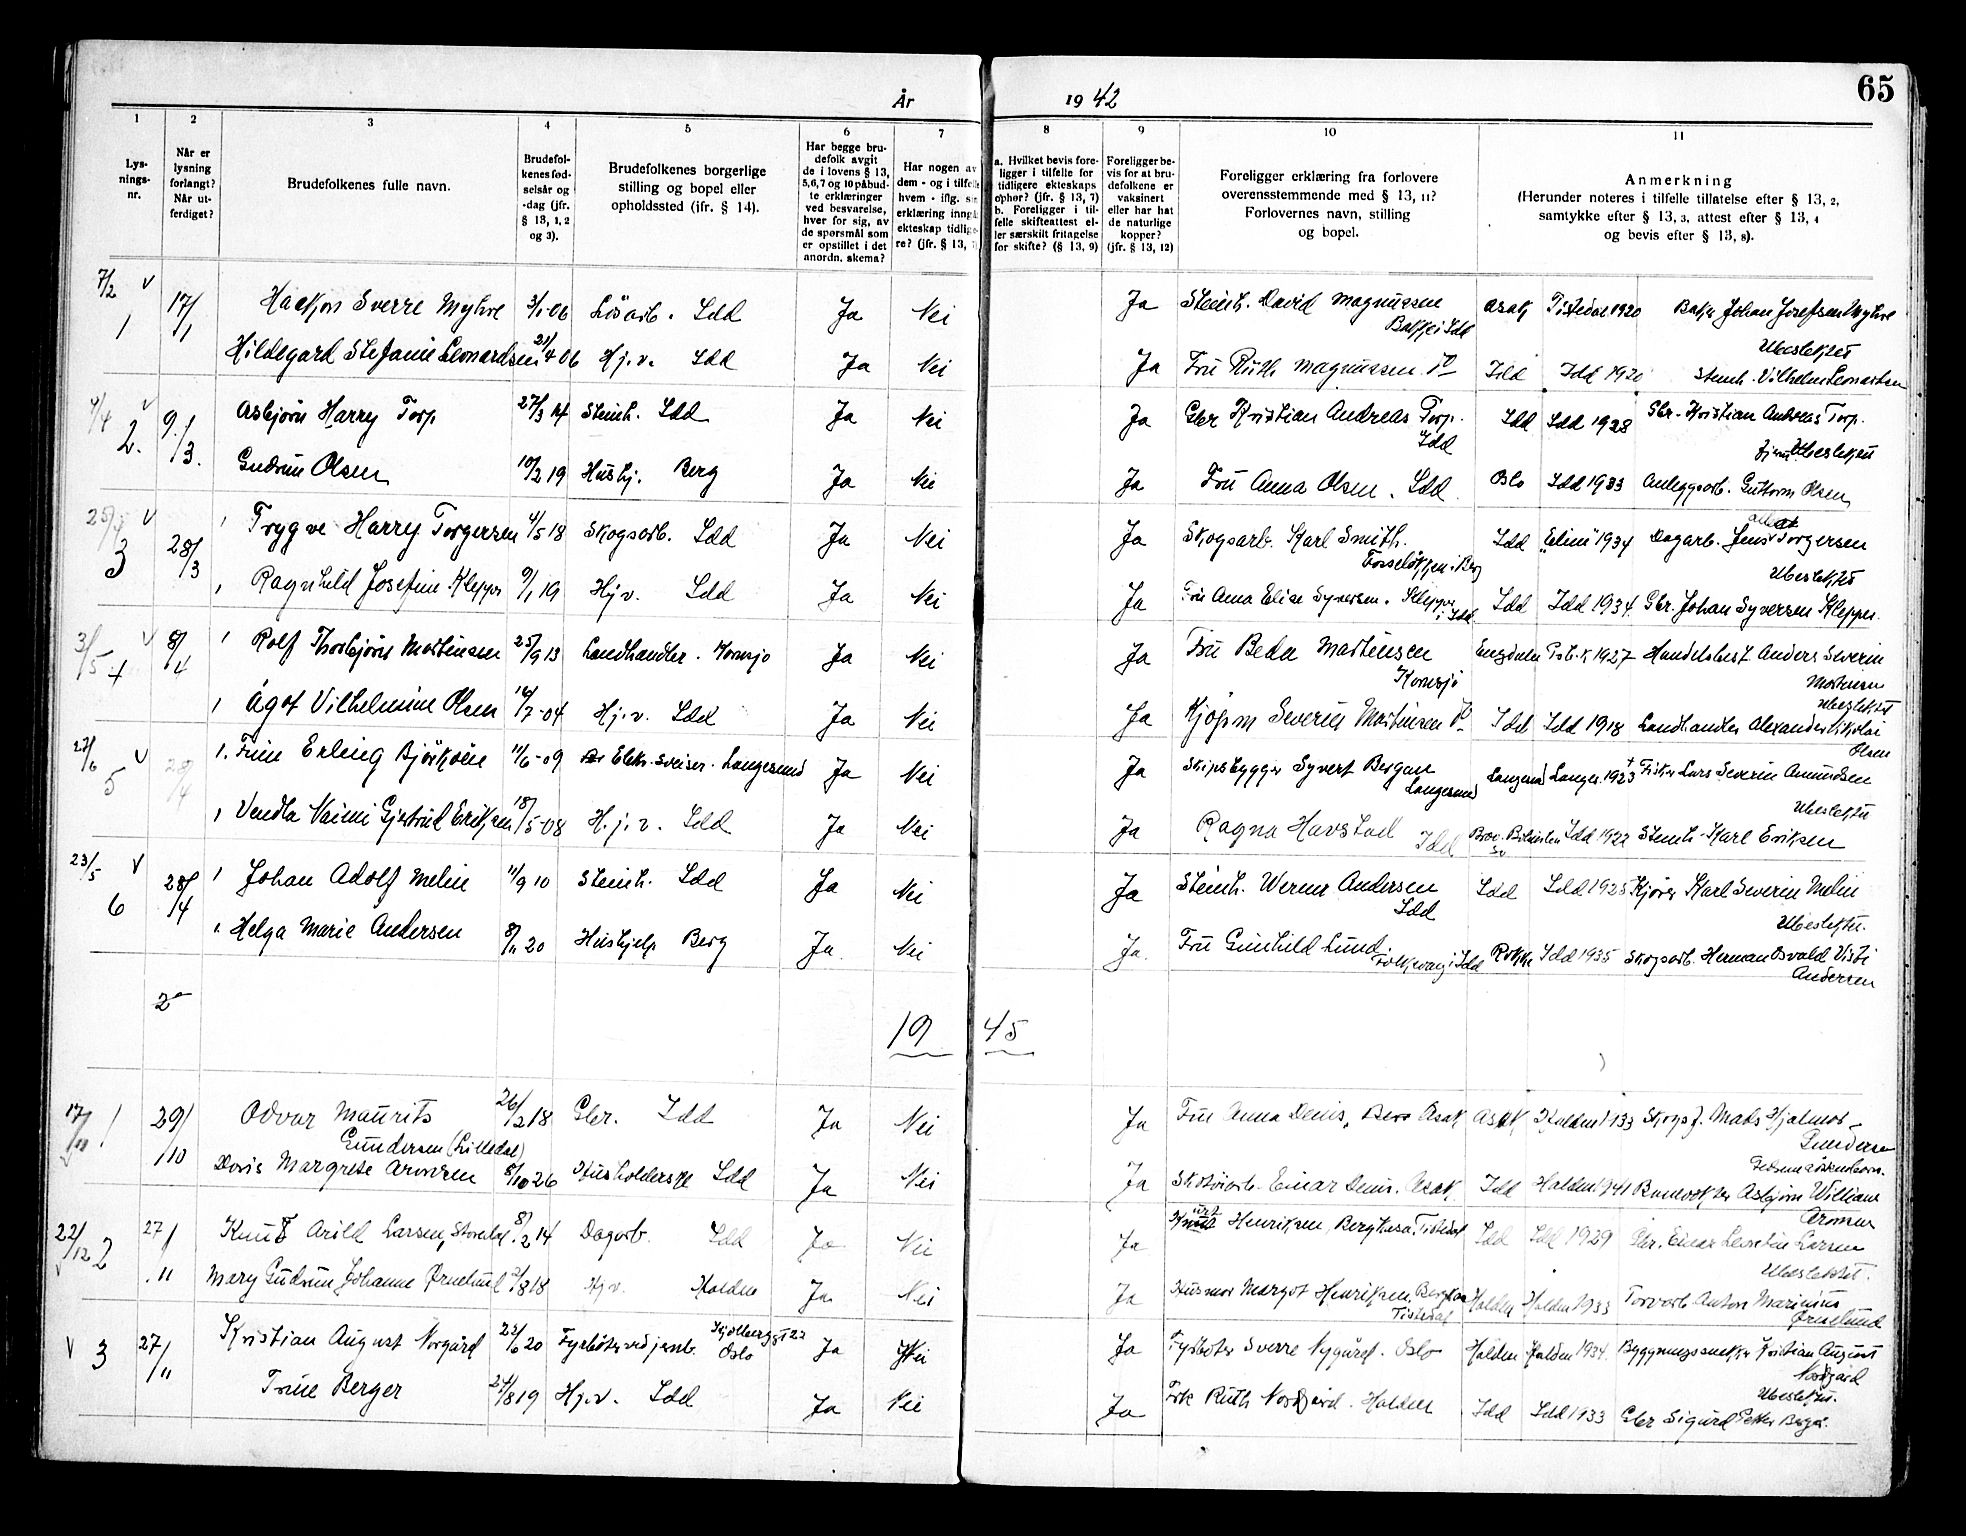 65
År 1942
1 2 3 4 5 6 7 8 9 10 11
Lys-
nings-
nr.
Når er
lysning
forlangt?
Når ut-
ferdiget?
Brudefolkenes fulle navn.
Brudefol-
kenes fød-
selsår og
-dag (jfr.
§ 13, 1, 2
og 3).
Brudefolkenes borgerlige
stilling og bopel eller
opholdssted (ifr. § 14).
Har begge bru-
defolk avgit
de i lovens § 13,
5,6,7 og 10 påbud-
te erklæringer
ved besvarelse,
hver for sig, av
de spørsmål som
er opstillet i det
anordn. skema?
Har nogen av
dem - og i tilfelle
hvem - iflg. sin
erklæring inngå
ekteskap tidlige-
re? (jfr. § 13, 7
a. Hvilket bevis fore-
ligger i tilfelle for
tidligere ekteskaps
ophør? (jfr. § 13, 7)
b. Foreligger i til-
felle skifteattest el-
ler særskilt fritagelse
for skifte? (§ 13, 9)
Foreligger be-
vis for at bru-
defolkene er
vaksinert
eller har hat
de naturlige
kopper?
(jfr. § 13, 12)
Foreligger erklæring fra forlovere
overensstemmende med § 13, 11?
Forlovernes navn, stilling
og bopel.
Anmerkning
(Herunder noteres i tilfelle tillatelse efter § 13, 2,
samtykke efter § 13, 3, attest efter § 13, 4
og bevis efter § 13, 8).
7/2 v
1 17/1 Haakon Sverre Myhre 3/1-06 Løsarb. Idd Ja Nei Ja Steinh. David Magnussen Asak Tistedal 1920 Johan Josefsen Myhre
Idd
Ubeslektet
Hildegard Stefanie Leonardsen 21/4 06 Hj.v. Idd Ja Nei Ja Fru Ruth Magnussen Idd Idd 1920 Steinh. Vilhelm Leonardsen
4/4 v
2. 9./3. Asbjørn Harry Torp 27/3 14 Steinh. Idd Ja Nei Ja Gbr Kristian Andreas Torp. Idd Idd 1928 Gbr. Kristian Andreas Torp.
Idd
Ubeslektet
Gudrun Olsen 10/2 19 Hushj. Berg Ja Nei Ja Fru Anna Olsen. Idd Oslo Idd 1933 Anleggsarb. Guttorm Olsen
v
3 28/3 Trygve Harry Torgersen 4/5 18 Skogsarb. Idd Ja Nei Ja Skogsarb. Karl Smith. Idd "Elim" 1934 Dagarb. Jens Torgersen
i Berg
Ubeslektet
Ragnhild Josefine Klepper 9/1 19 Hj.v. Idd Ja Nei Ja Fru Anna Elise Syversen. Klepper i Idd Idd Idd 1934 Gbr. Johan Syversen Klepper.
31/5 v
4 8/4 Rolf Thorbjørn Martinsen 25/9 13 Landhandler. Kornsjø Ja Nei Ja Fru Beda Martinsen 1927 Handelsbest. Anders Severin
Kornsjø
Martinsen
Ubeslektet
Ågot Vilhelmine Olsen 16/7-04 Hj.v. Idd Ja Nei Ja Kjøpm Severin Martinsen Idd Idd 1918 Landhandler Alexander Nikolai
Olsen
27/6 v
5 Erling Bjørkøen 11/6-09 Elektr. sveiser. Langesund Ja Nei Ja Skipsbygger Syvert Bergan Langesund Langes. 1923 Fisker Lars Severin Amundsen
Langesund
Ubeslektet
Vendla Naimi Gjertrud Eriksen 18/5-08 H.j.v. Idd Ja Nei Ja Ragna Havstad Idd Idd 1922 Steinh. Karl Eriksen
23/5 v
6 28/4 Johan Adolf Melin 11/9 10 Steinh. Idd Ja Nei Ja Steinh. Werner Andersen Idd Idd 1925 Kjører Karl Severin Melin
Idd
Ubeslektet.
Helga Marie Andersen 8/11 20 Hushjelp Berg Ja. Nei Ja. Fru Gunhild Lund. i Idd Rokke Idd 1935 Skogsarb. Herman Osvald
Andersen
1945
17/11 1 29/10 Odvar Maurits 26/2 18 Gbr. Idd Ja Nei Ja Fru Anna Denis, Asak Asak Halden 1933 Mads Hjalmar
Gundersen (Lilledal)
Gundersen
Doris Margrete Aronsen 8/10 26 Husholderske Idd Ja Nei Ja Skotøiarb. Einar Denis. Asak Idd Halden 1941 Asbjørn William
Aronsen
22/12 2 27/11 Knut Arild Larsen, Storedal 8/2 14 Dagarb. Idd Ja Nei Ja Henriksen, Tistedal Idd Idd 1929 Gbr. Einar Larsen
Ubeslektet.
Mary Gudrun Johanne Ørnelund 2/8 18 Hj.v. Halden Ja Nei Ja Husmor Margot Henriksen, Halden Halden 1933 Torvarb. Anton Marinius
Tistedal
Ørnelund
v 3 27/11 Kristian August Norgård 22/6 20 Fyrbøter ved jernb. Oslo Ja Nei Ja Fyrbøter Sverre Nygård. Oslo Halden Halden 1934. Byggningssnekker Kristian August
Nordgård
Ubeslektet.
Trine Berger 24/8 19 Hj.v. Idd Ja Nei Ja Frk Ruth Nordgård. Halden Idd Idd 1933 Gbr Sigurd Petter Berger.